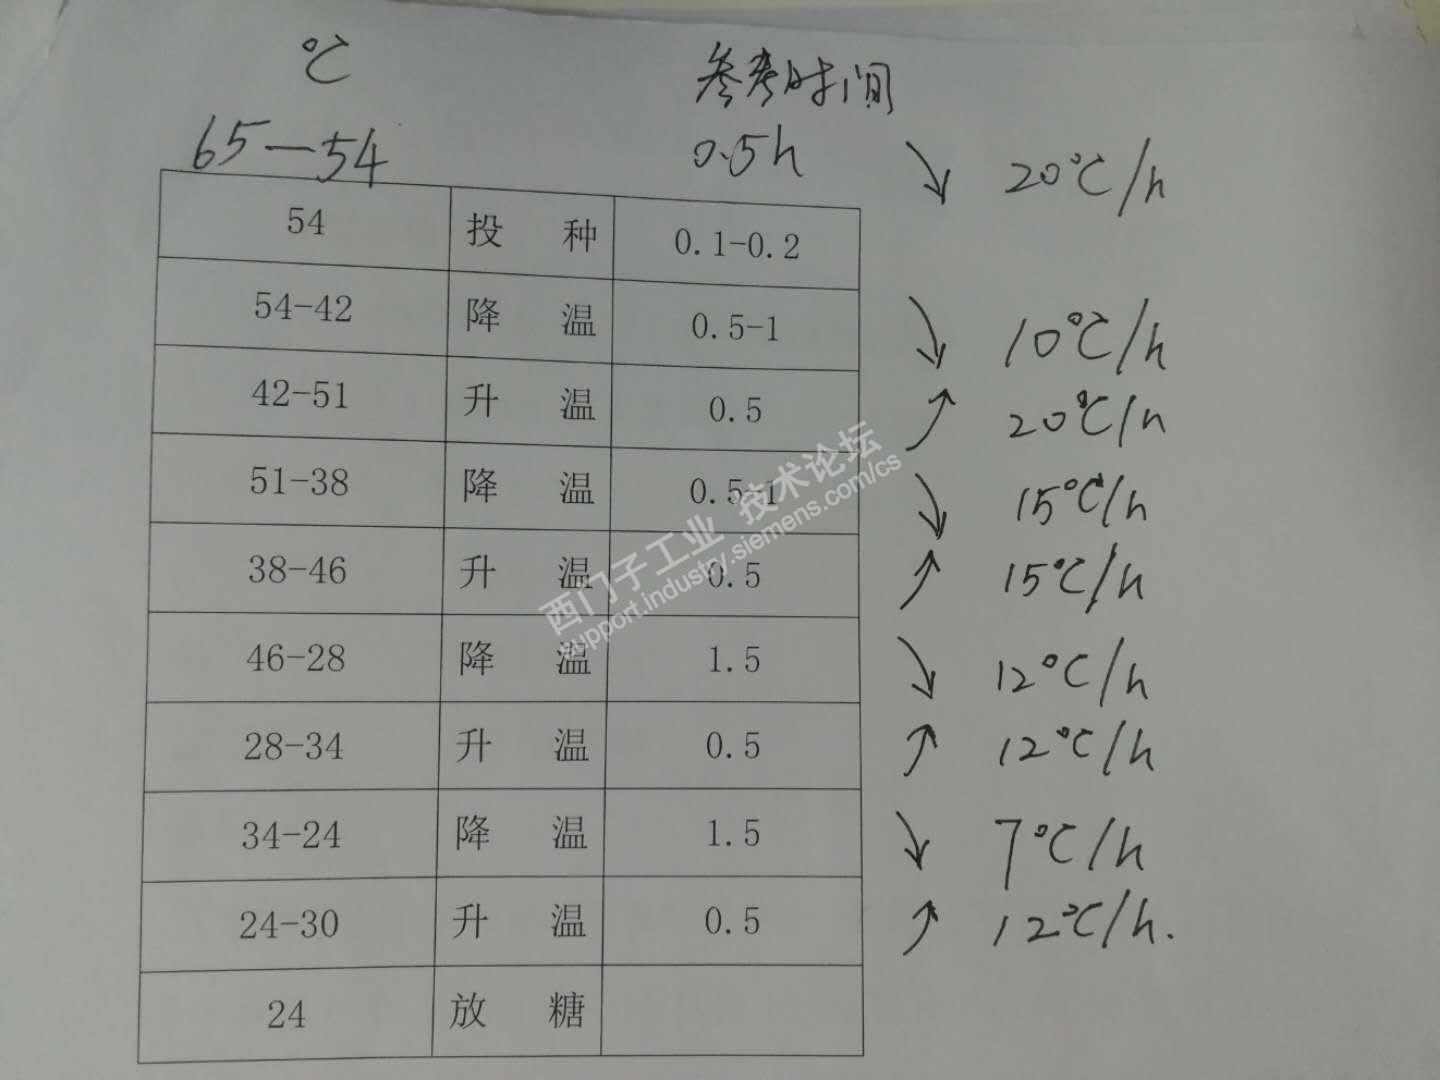 ℃ 参考时间
65—54 0.5h ↘ 20℃/h
54 投 种 0.1-0.2
54-42 降 温 0.5-1 ↘ 10℃/h
42-51 升 温 0.5 ↗ 20℃/h
51-38 降 温 0.5-1 ↘ 15℃/h
38-46 升 温 0.5 ↗ 15℃/h
46-28 降 温 1.5 ↘ 12℃/h
28-34 升 温 0.5 ↗ 12℃/h
34-24 降 温 1.5 ↘ 7℃/h
24-30 升 温 0.5 ↗ 12℃/h.
24 放 糖
西门子工业 技术论坛
support.industry.siemens.com/cs